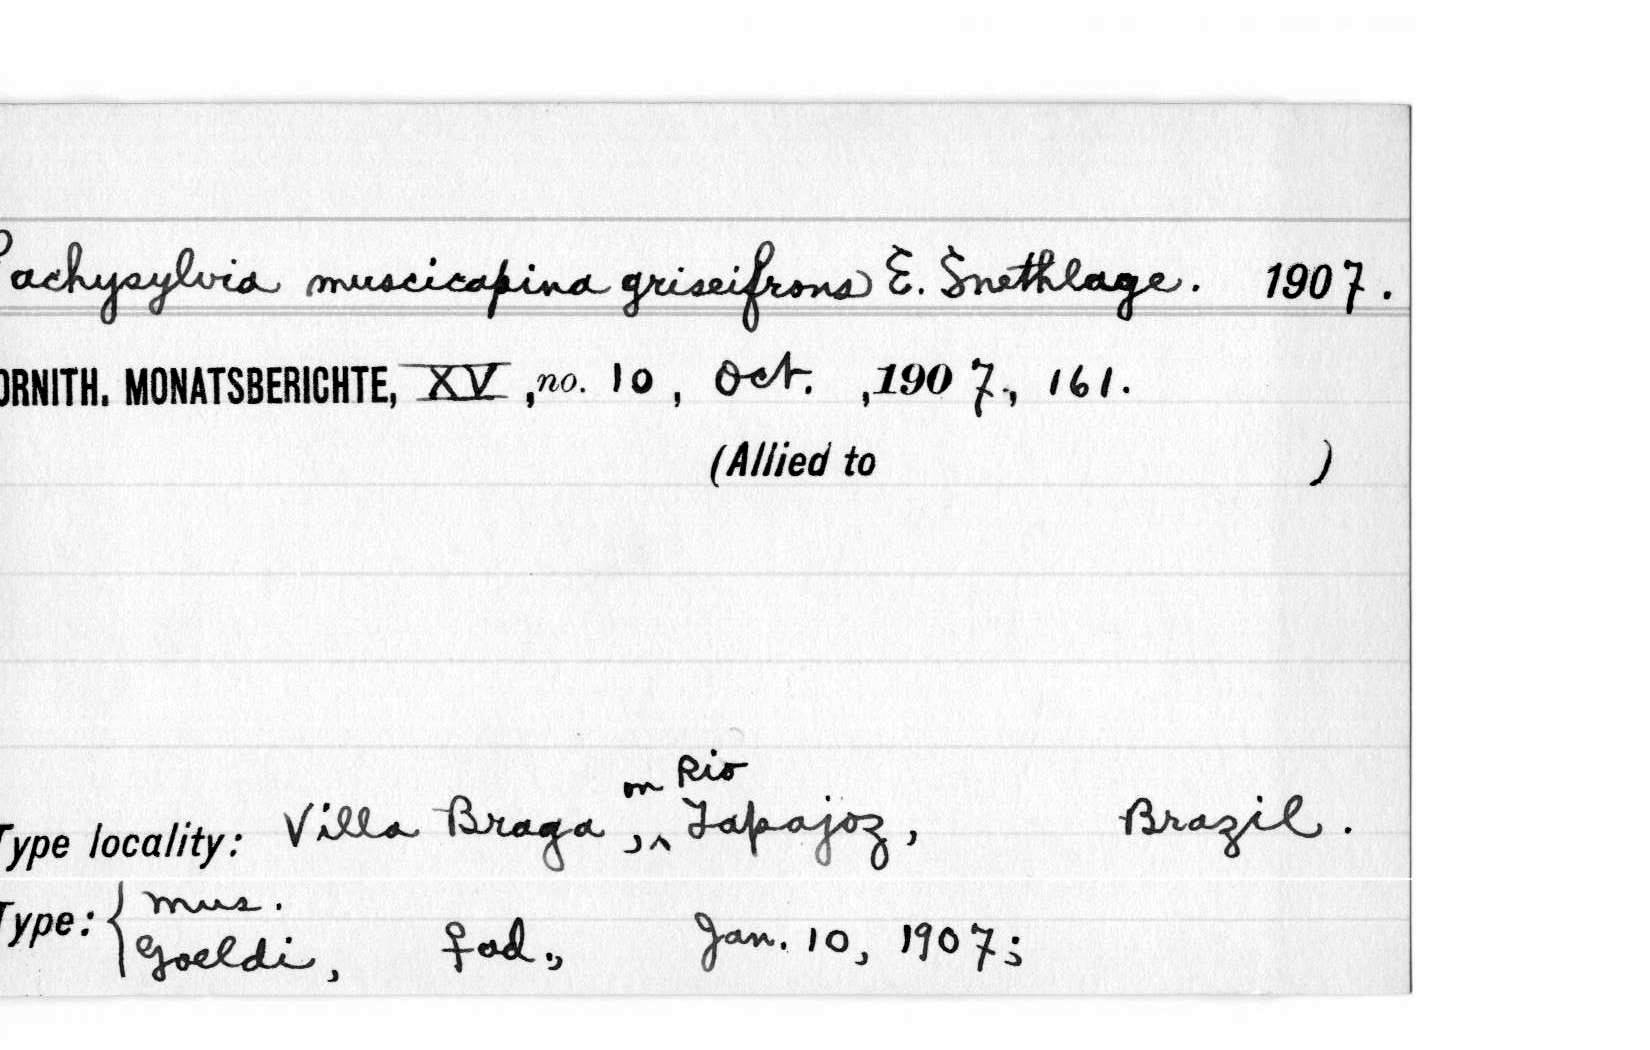 Pachysylvia muscicapina griseifrons E. Snethlage. 1907.
ORNITH. MONATSBERICHTE, XV, no. 10, Oct. , 1907, 161.
(Allied to )
on Rio
Villa Braga, ^ Tapajoz, Brazil.
Type locality:
Type: { Mus. Goeldi, f ad., Jan. 10, 1907;